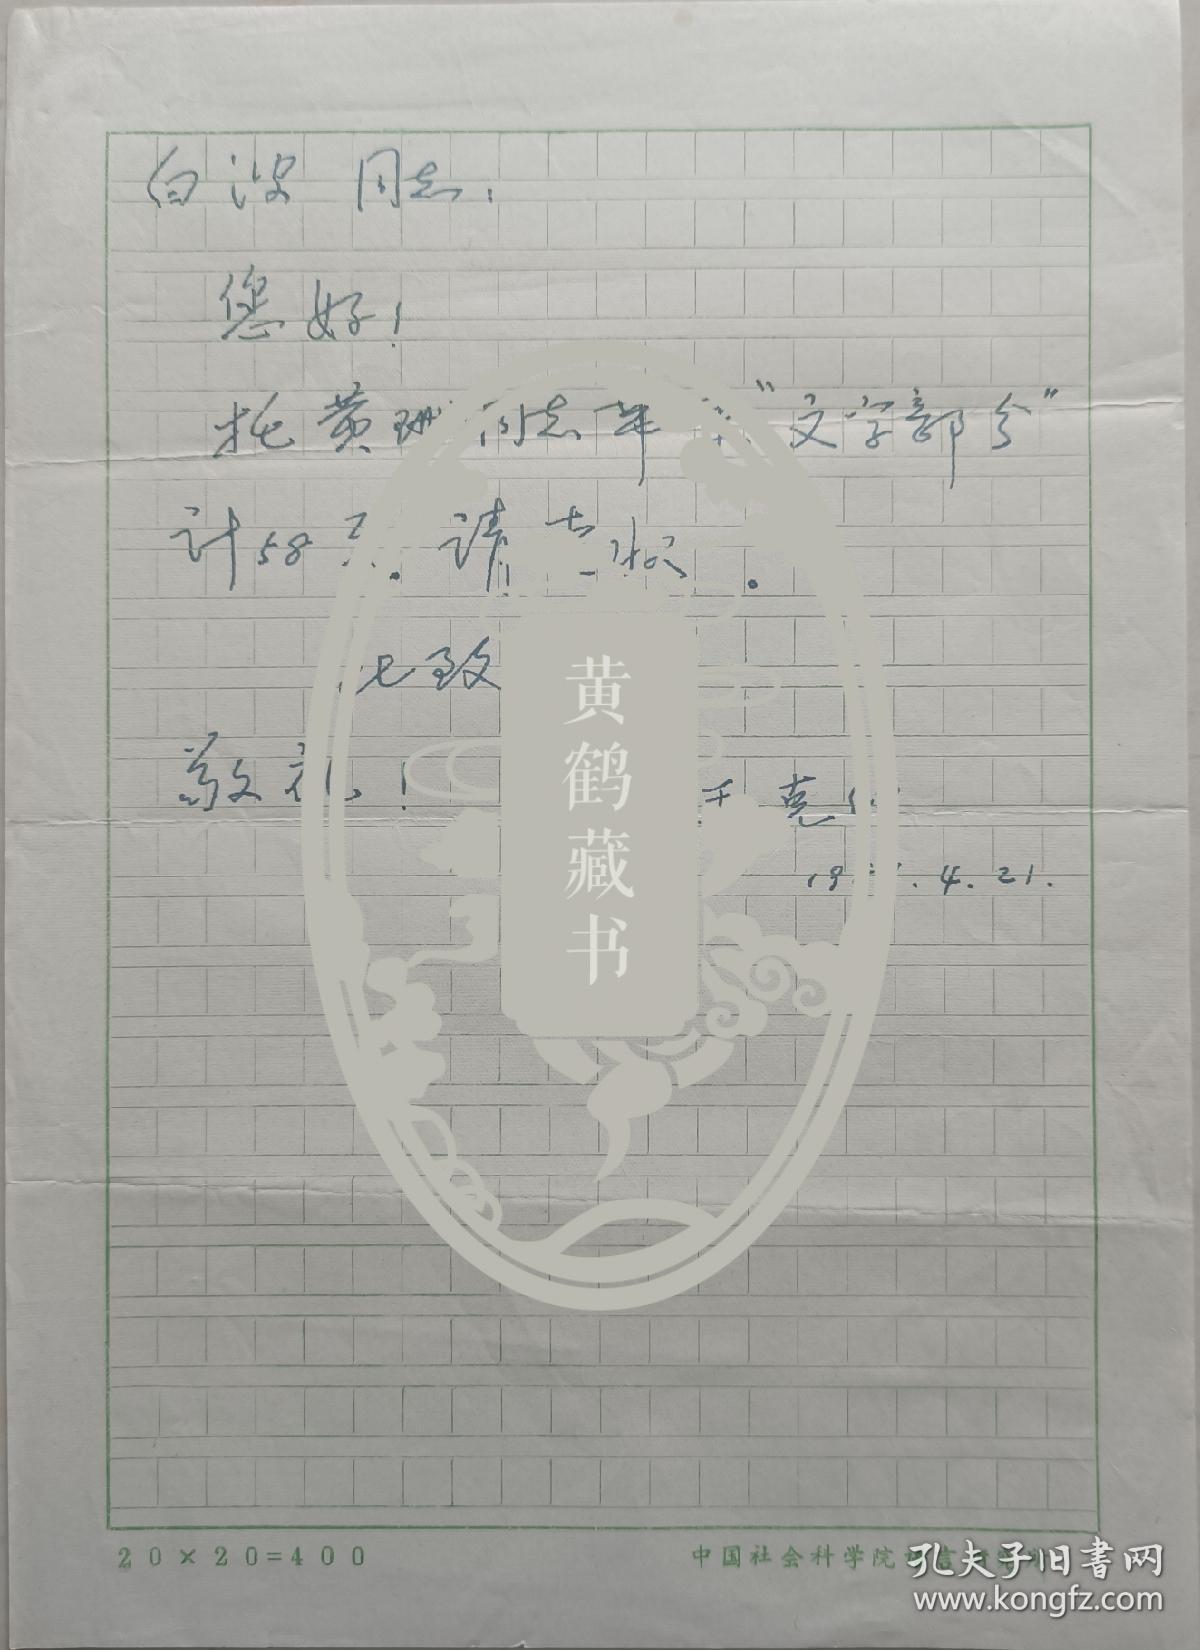 白波 同志：
您好！
托黄 同志 "文字部分"
计58页。请 收。
此致
敬礼！
克
4.21.
黄鹤藏书
20×20=400
中国社会科学院
孔夫子旧书网
www.kongfz.com